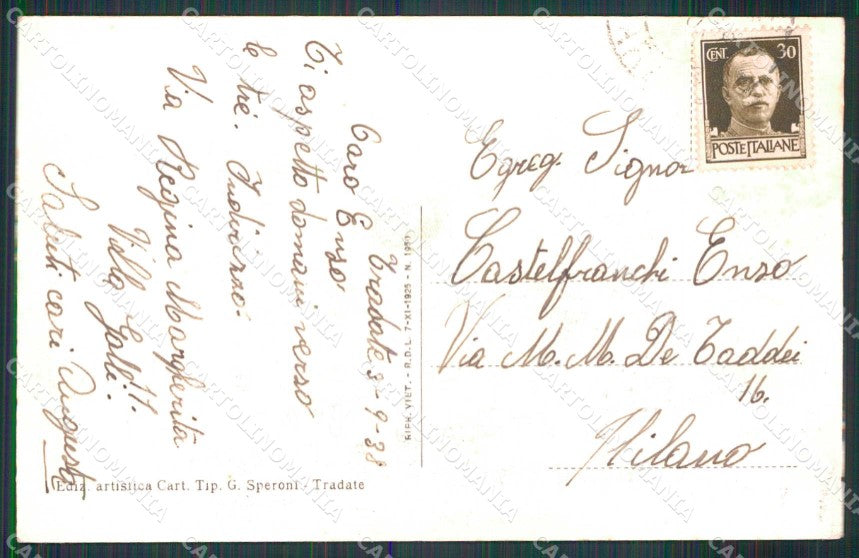 Tradate 9-9-38
Caro Enzo
Ti aspetto domani verso
le tre. Indirizzo.
Via Regina Margherita
11.
Villa Galli.
Saluti cari Augusto
Ediz. artistica Cart. Tip. G. Speroni - Tradate
RIPR. VIET. - R.D.L. 7-XI-1925 - N. 1950
CENT. 30
POSTE ITALIANE
Egreg. Signor
Castelfranchi Enzo
Via M. M. De Taddei
16.
Milano
CARTOLINOMANIA